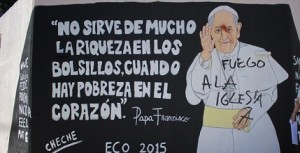 "NO SIRVE DE MUCHO
LA RIQUEZA EN LOS
BOLSILLOS, CUANDO
HAY POBREZA EN EL
CORAZÓN".
Papa Francisco
CHECHE
ECO 2015
FUEGO
A LA
IGLESIA
A